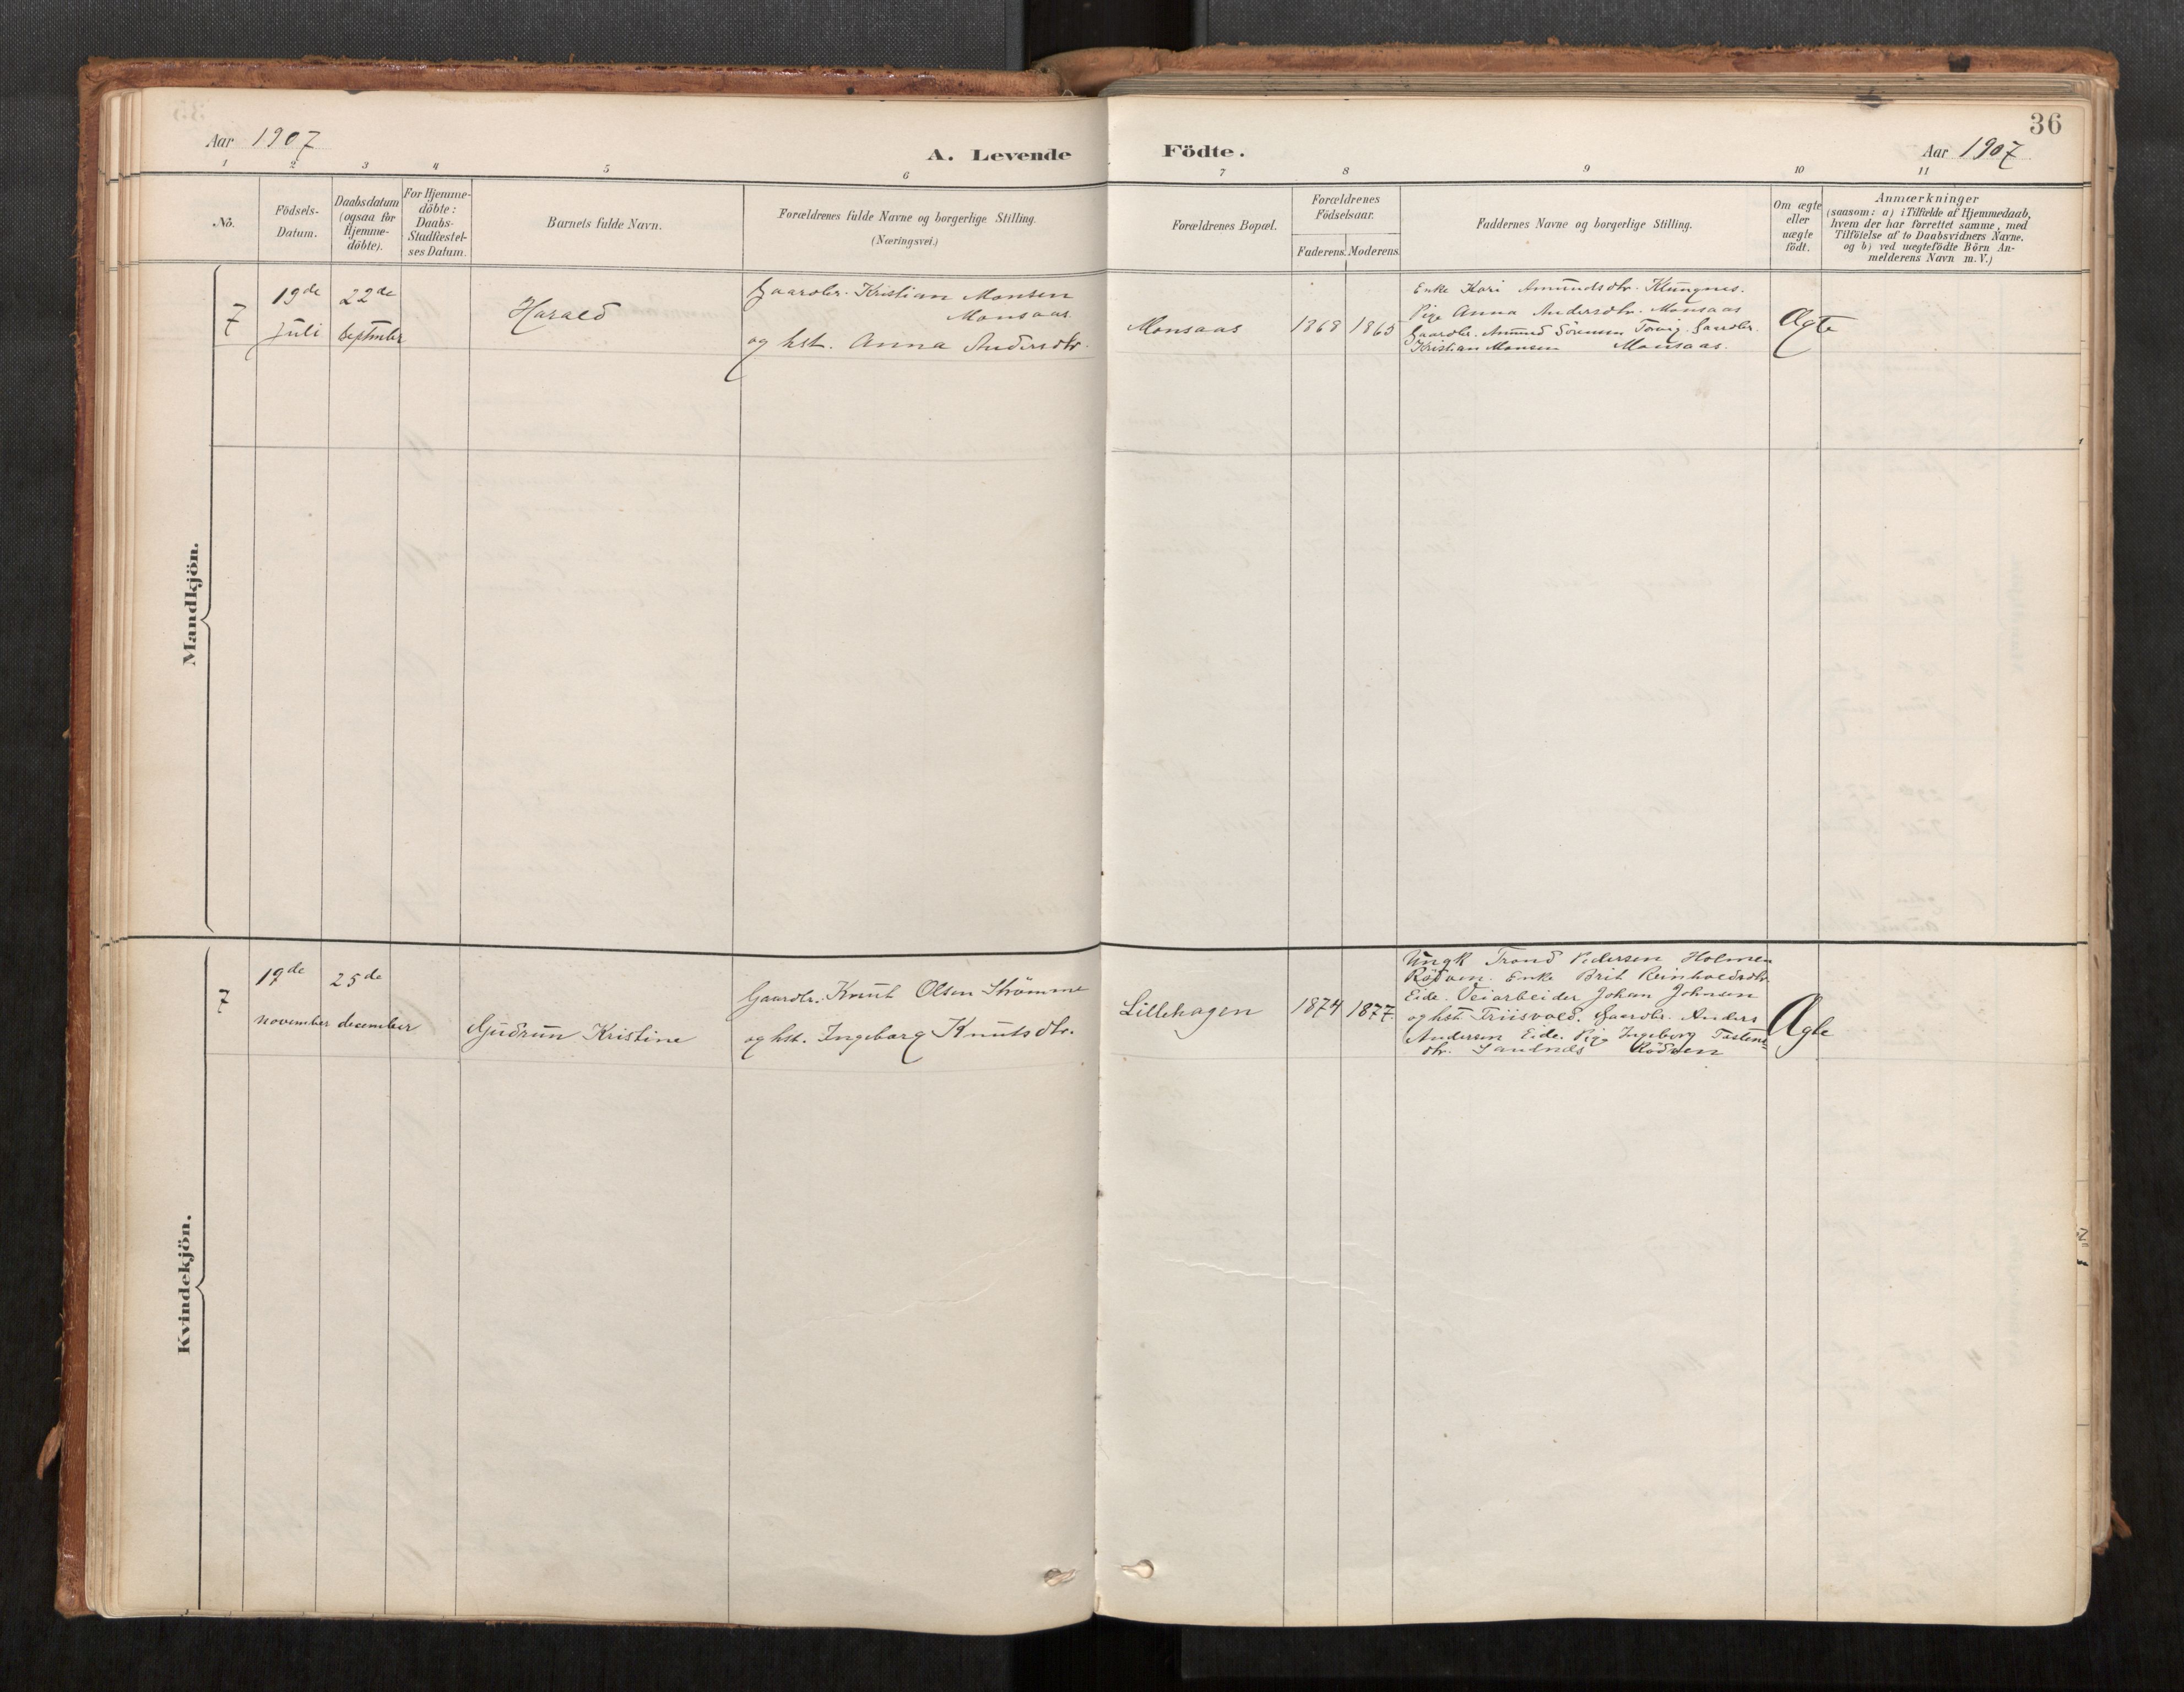 36
Aar 1907
A. Levende Födte.
Aar 1907
1 2 3 4 5 6 7 8 9 10 11
No.
Födsels-
Datum.
Daabsdatum
(ogsaa for
Hjemme-
döbte).
For Hjemme-
döbte:
Daabs-
Stadfæstel-
ses Datum.
Barnets fulde Navn.
Forældrenes fulde Navne og borgerlige Stilling.
(Næringsvei.)
Forældrenes Bopæl.
Forældrenes
Födselsaar.
Faderens. Moderens.
Faddernes Navne og borgerlige Stilling.
Om ægte
eller
uægte
födt.
Anmærkninger
(saasom: a) i Tilfælde af Hjemmedaab,
hvem der har forrettet samme, med
Tilföielse af to Daabsvidners Navne.
og b) ved uægtefödte Börn An-
melderens Navn m. V.)
Mandkjön.
7
19de
Juli
22de
September
Harald
Gaardbr. Kristian Monsen
Monsaas
og hst. Anna Andersdtr.
Monsaas
1868
1865
Enke Kari Amundsdtr. Klungnes.
Pige Anna Andersdtr. Monsaas
Gaardbr. Amund Sörensen Gaardbr.
Kristian Monsen Monsaas.
Ægte
Kvindekjön.
7
19de
november
25de
desember
Gudrun Kristine
Gaardbr. Knut Olsen Strömme
og hst. Ingeborg Knutsdtr.
Lillehagen
1874
1877.
Ungk Trond Pedersen Holmen
Rödven. Enke Brit Reinholdsdtr.
Eide. Veiarbeider Johan Johnsen
og hst Friisvold. Gaardbr. Anders
Andersen Eide. Pige Ingeborg Tosten-
dtr. Sandnes Rödven
Ægte